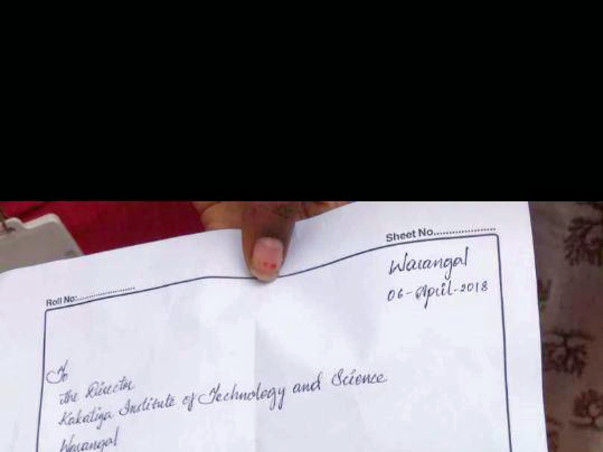 Sheet No.....................
Warangal
06-April-2018
Roll No:......................
To
The Director
Kakatiya Institute of Technology and Science
Warangal